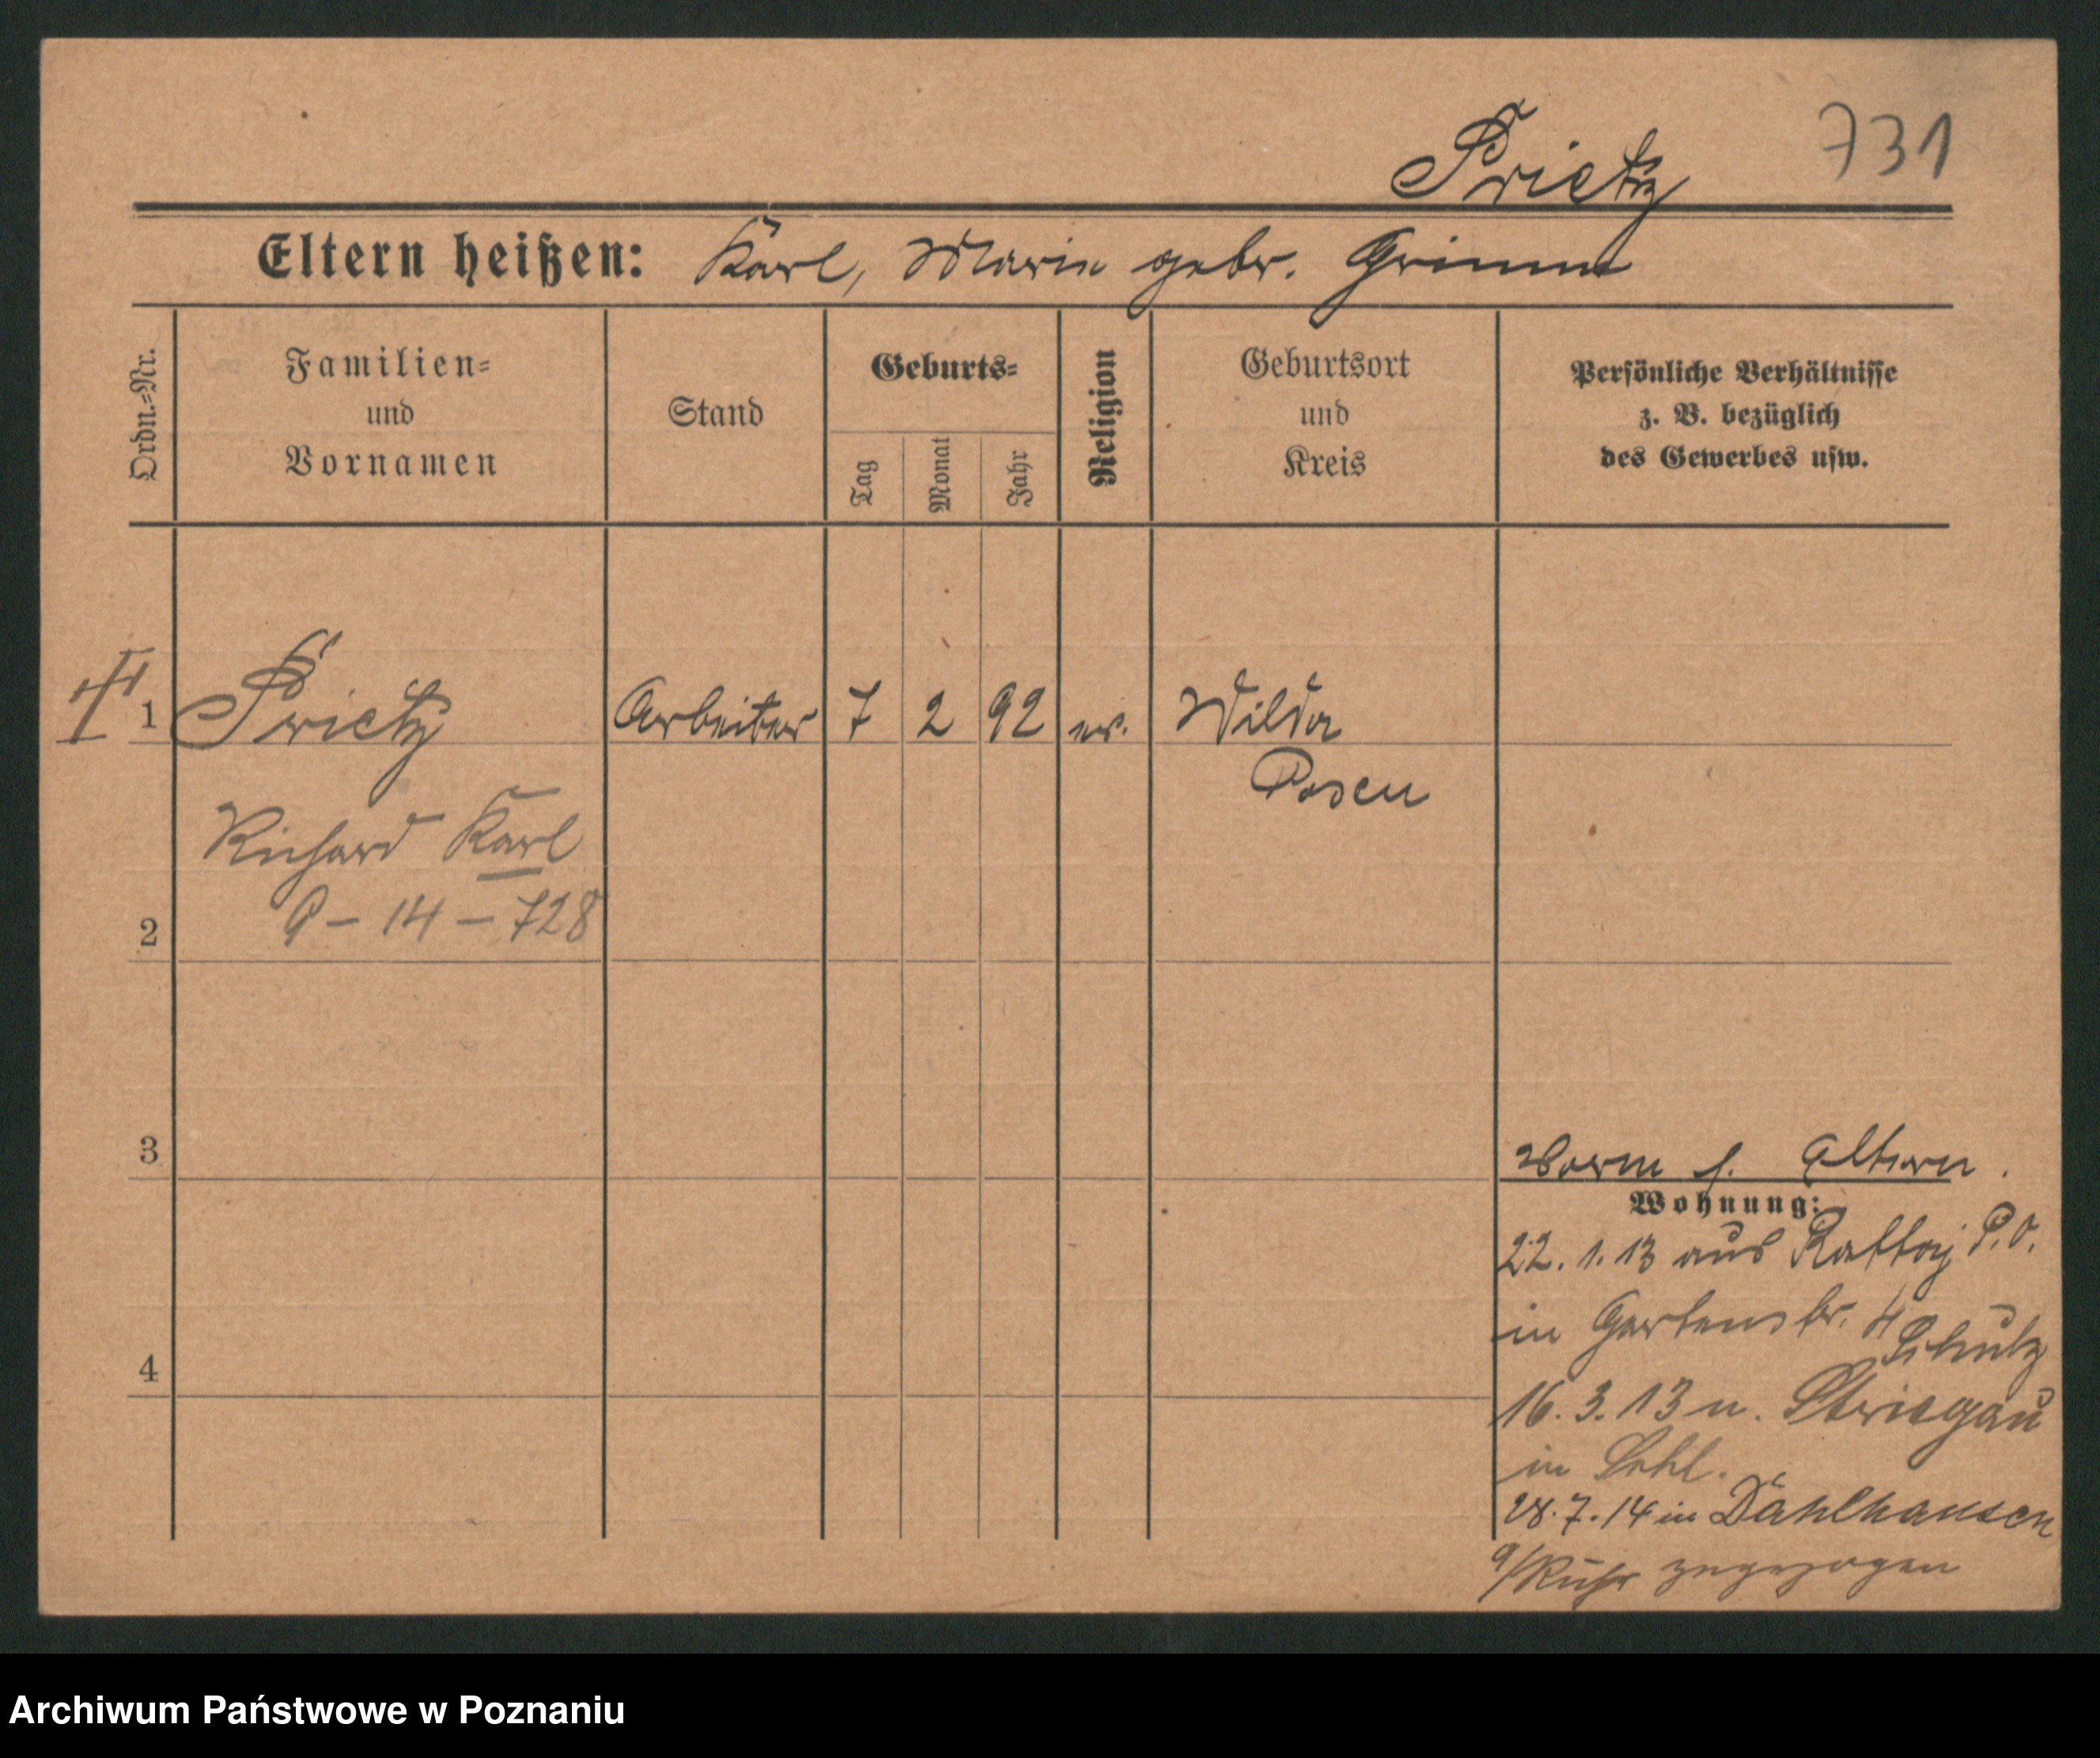 731
Prietz
Eltern heißen: Karl, Marie gebr. Grimm
Ordn.-Nr.
Familien-
und
Vornamen
Stand
Geburts-
Tag
Monat
Jahr
Religion
Geburtsort
und
Kreis
Persönliche Verhältnisse
z. B. bezüglich
des Gewerbes usw.
1 Prietz Arbeiter 7 2 92 ev. Wilda
Posen
Richard Karl
9-14-728
2
3
4
Vorm s. Eltern.
Wohnung:
22.1.13 aus Rattaj P.O.
in Gartenstr. 4
Schulz
16.3.13 n. Striegau
in Schl.
28.7.14 in Dahlhausen
a/Ruhr zugezogen
Archiwum Państwowe w Poznaniu